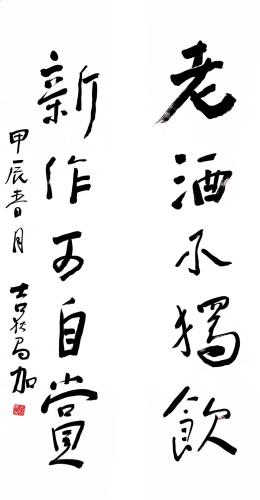 老酒不獨飲
新作可自賞
甲辰春月 吉狄馬加